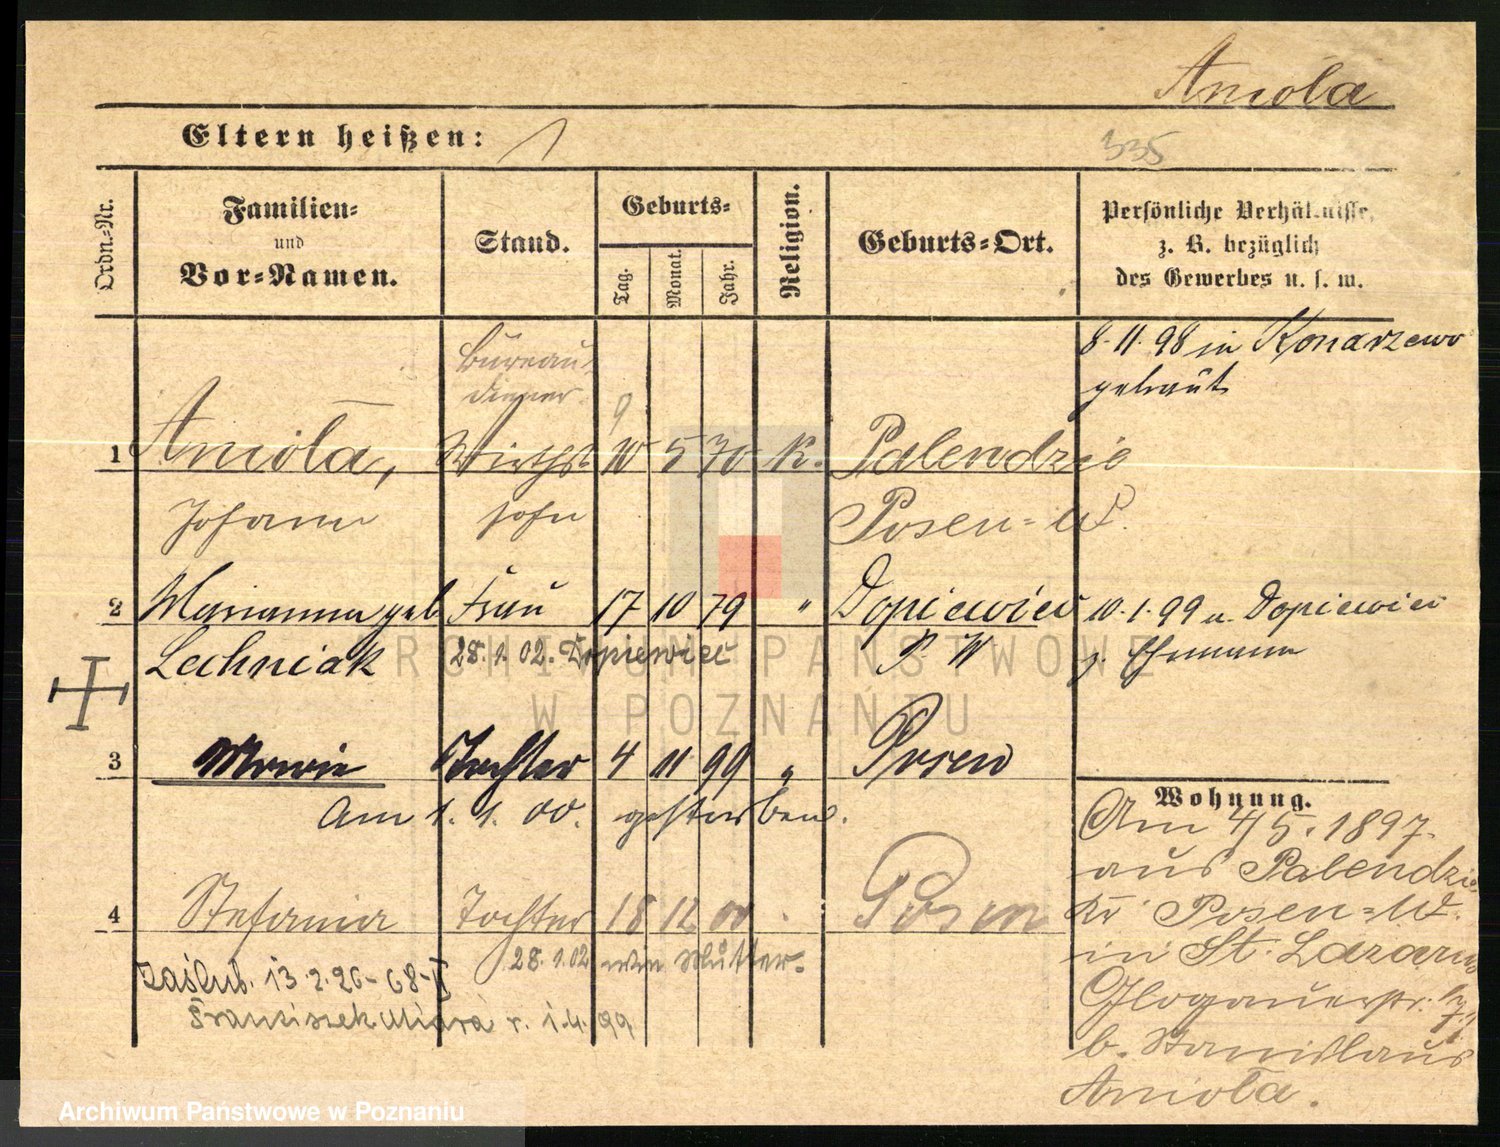 Anioła
Eltern heißen: 1
335
Ordn.-Nr.
Familien=
und
Vor=Namen.
Stand.
Geburts=
Tag.
Monat.
Jahr.
Religion.
Geburts=Ort.
Persönliche Verhältnisse,
z. B. bezüglich
des Gewerbes u. s. w.
8. 11. 98 in Konarzewo
getraut
Bureau-
diener
9
1 Anioła, Wirthst 10 5 70 K. Palendzie
Johann sohn Posen=W.
2 Marianna geb Frau 17 10 79 " Dopiewiec 10. 1. 99 v. Dopiewiec
Lechniak 28. 1. 02. Dopiewiec P. W z. Ehemann
3 Marie Tochter 4 11 99 " Posen
am 1. 1. 00. gestorben.
4 Stefania Tochter 18 12 00 Posen
28. 1. 02 wie Mutter.
Zaślub. 13. 2. 26 - 68 - II
Franciszek Miara r. 1. 4. 99
Wohnung.
Am 4/5. 1897.
aus Palendzie
Kr Posen=W.
in St. Lazarus
Glogauerstr.
b. Stanislaus
Anioła.
ARCHIWUM PAŃSTWOWE
W POZNANIU
Archiwum Państwowe w Poznaniu